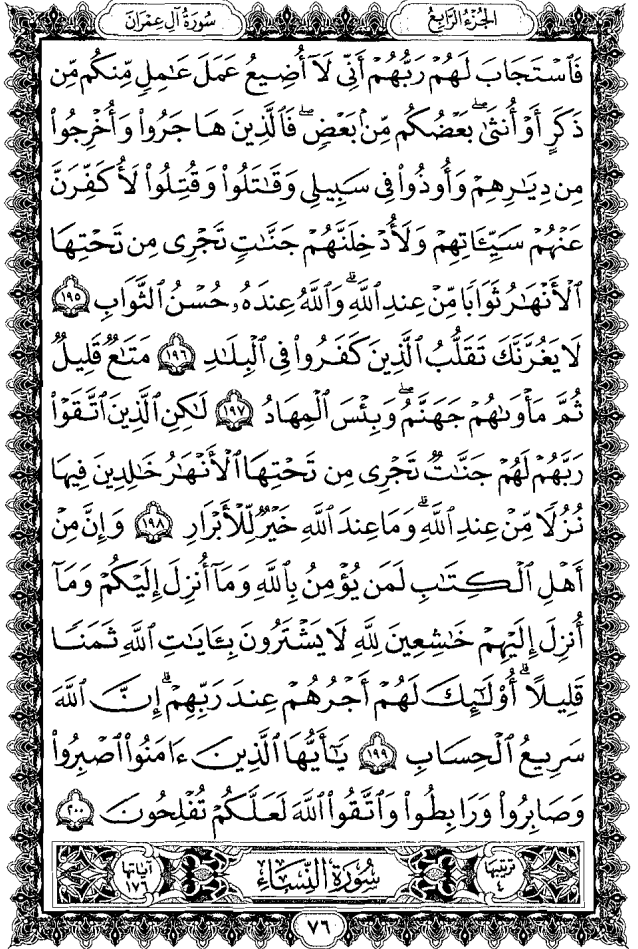 الجزء الرابع
سورة آل عمران
فَٱسْتَجَابَ لَهُمْ رَبُّهُمْ أَنِّى لَآ أُضِيعُ عَمَلَ عَٰمِلٍ مِّنكُم مِّن
ذَكَرٍ أَوْ أُنثَىٰ ۖ بَعْضُكُم مِّنۢ بَعْضٍ ۖ فَٱلَّذِينَ هَاجَرُوا۟ وَأُخْرِجُوا۟
مِن دِيَٰرِهِمْ وَأُوذُوا۟ فِى سَبِيلِى وَقَٰتَلُوا۟ وَقُتِلُوا۟ لَأُكَفِّرَنَّ
عَنْهُمْ سَيِّـَٔاتِهِمْ وَلَأُدْخِلَنَّهُمْ جَنَّٰتٍ تَجْرِى مِن تَحْتِهَا
ٱلْأَنْهَٰرُ ثَوَابًا مِّنْ عِندِ ٱللَّهِ ۗ وَٱللَّهُ عِندَهُۥ حُسْنُ ٱلثَّوَابِ ١٩٥
لَا يَغُرَّنَّكَ تَقَلُّبُ ٱلَّذِينَ كَفَرُوا۟ فِى ٱلْبِلَٰدِ ١٩٦ مَتَٰعٌ قَلِيلٌ
ثُمَّ مَأْوَىٰهُمْ جَهَنَّمُ ۚ وَبِئْسَ ٱلْمِهَادُ ١٩٧ لَٰكِنِ ٱلَّذِينَ ٱتَّقَوْا۟
رَبَّهُمْ لَهُمْ جَنَّٰتٌ تَجْرِى مِن تَحْتِهَا ٱلْأَنْهَٰرُ خَٰلِدِينَ فِيهَا
نُزُلًا مِّنْ عِندِ ٱللَّهِ ۗ وَمَا عِندَ ٱللَّهِ خَيْرٌ لِّلْأَبْرَارِ ١٩٨ وَإِنَّ مِنْ
أَهْلِ ٱلْكِتَٰبِ لَمَن يُؤْمِنُ بِٱللَّهِ وَمَآ أُنزِلَ إِلَيْكُمْ وَمَآ
أُنزِلَ إِلَيْهِمْ خَٰشِعِينَ لِلَّهِ لَا يَشْتَرُونَ بِـَٔايَٰتِ ٱللَّهِ ثَمَنًا
قَلِيلًا ۗ أُو۟لَٰٓئِكَ لَهُمْ أَجْرُهُمْ عِندَ رَبِّهِمْ ۗ إِنَّ ٱللَّهَ
سَرِيعُ ٱلْحِسَابِ ١٩٩ يَٰٓأَيُّهَا ٱلَّذِينَ ءَامَنُوا۟ ٱصْبِرُوا۟
وَصَابِرُوا۟ وَرَابِطُوا۟ وَٱتَّقُوا۟ ٱللَّهَ لَعَلَّكُمْ تُفْلِحُونَ ٢٠٠
ترتيبها ٤
سورة النساء
آياتها ١٧٦
٧٦